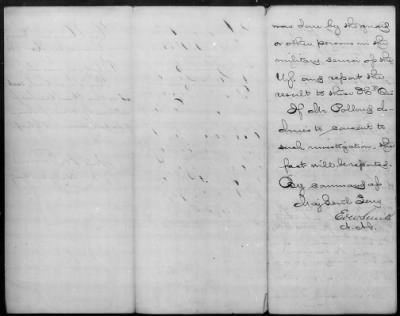 was done by the
or other persons in the
military service of the
U.S. and report the
result to these Hd. Qrs.
If Mr. Collins de-
clines to consent to
such investigation, the
fact will be reported.
By command of
Maj Genl Terry
Ed W Smith
A.A.G.